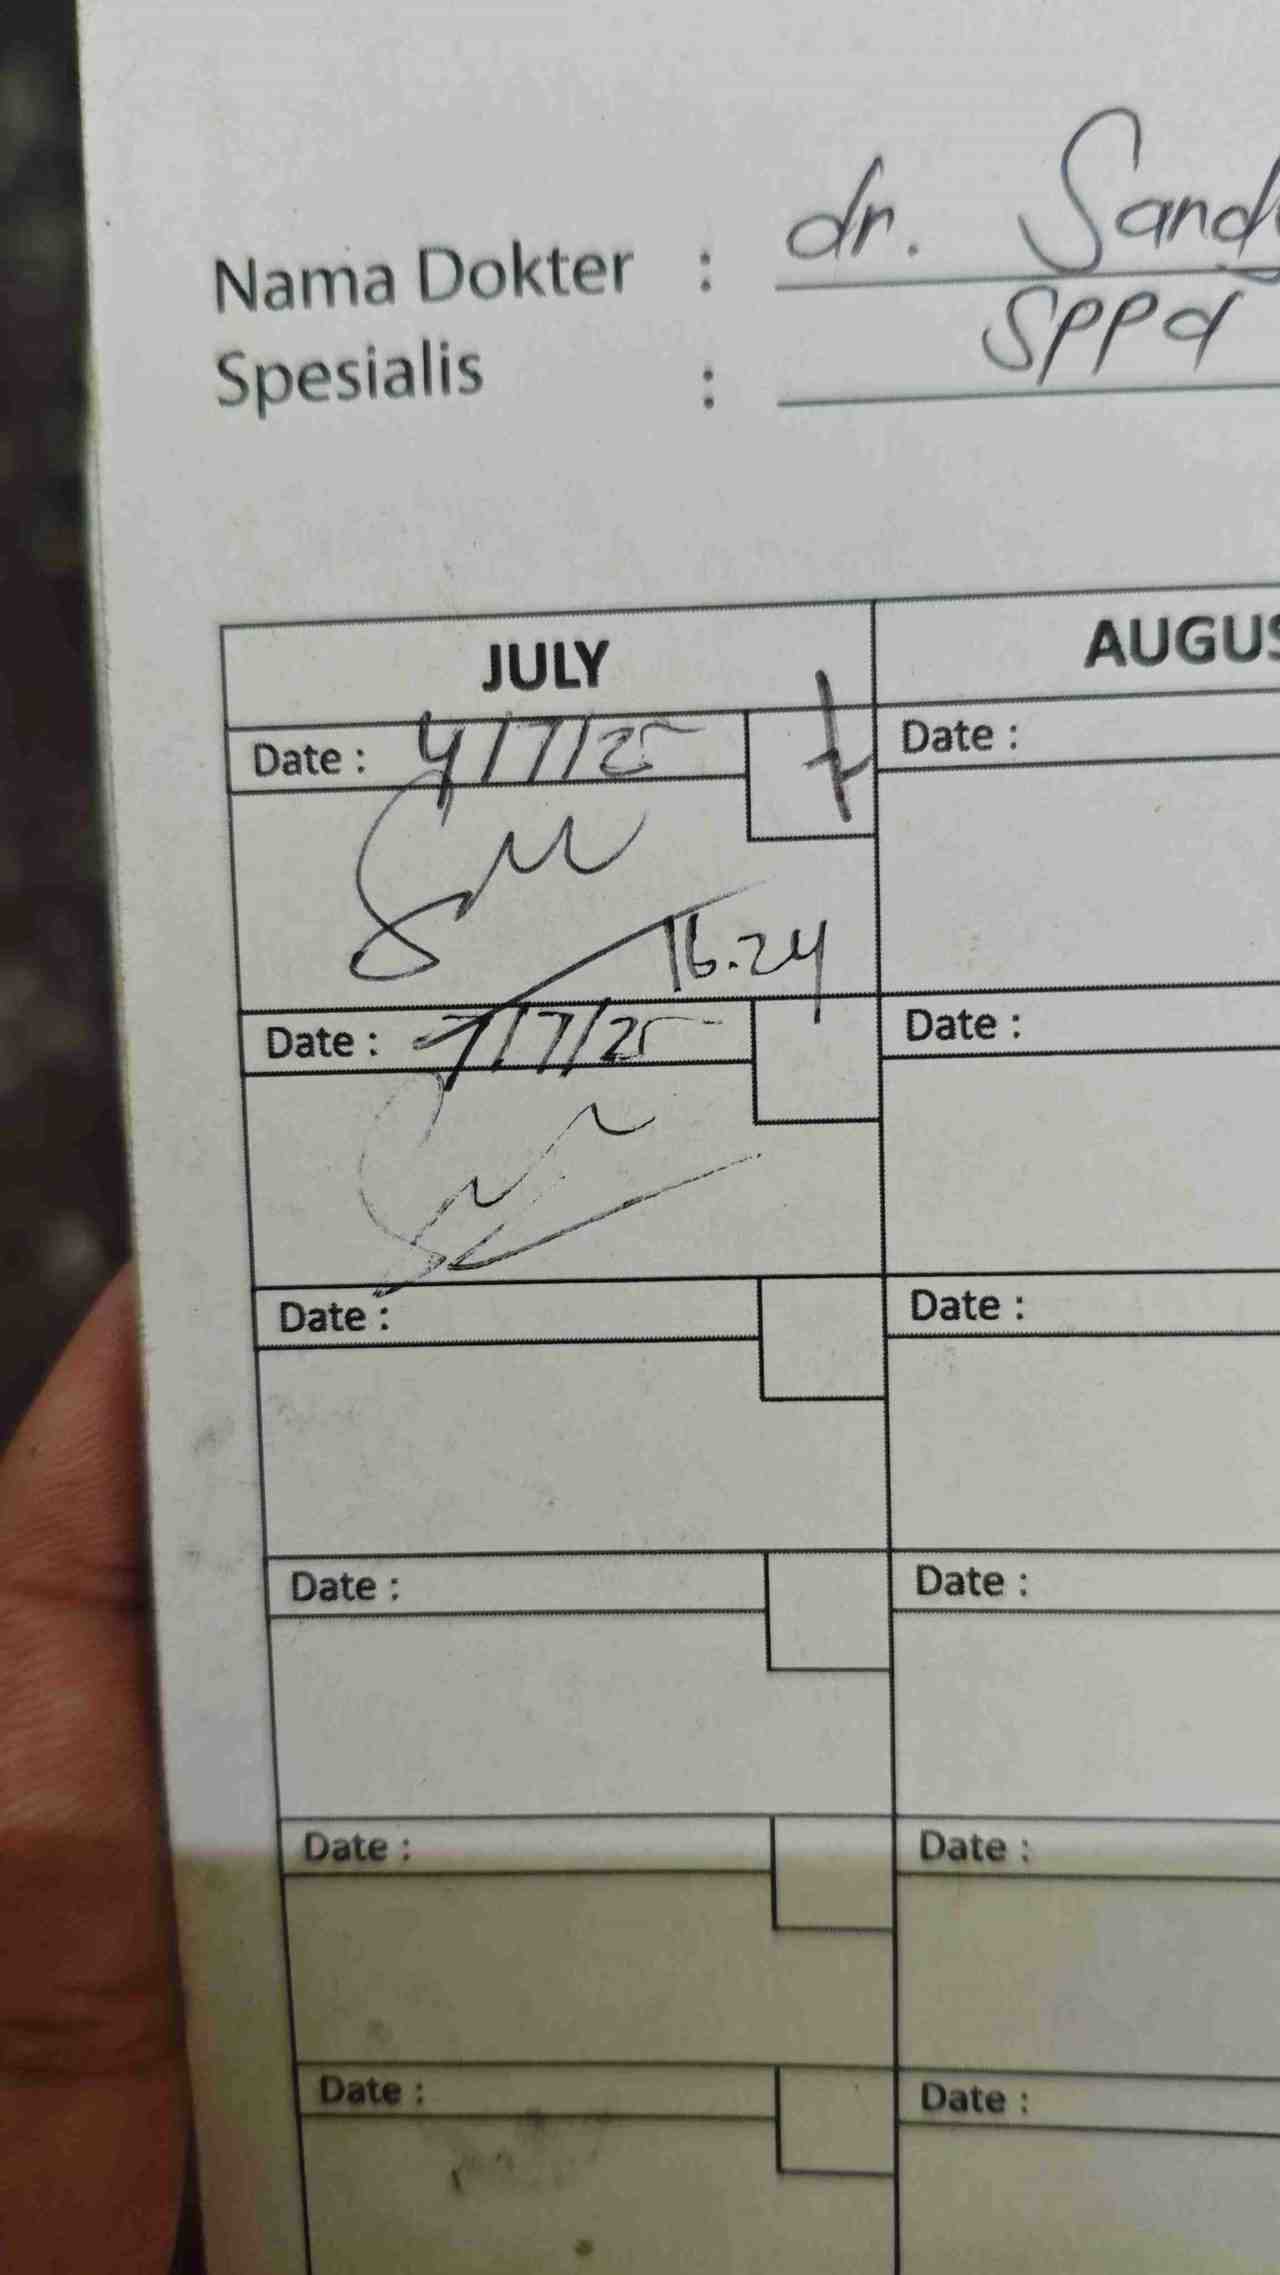 Nama Dokter : dr. Sandy
Spesialis : SPPd
JULY AUGUS
Date : 4/7/25 Date :
16.24
Date : 7/7/25 Date :
Date : Date :
Date : Date :
Date : Date :
Date : Date :